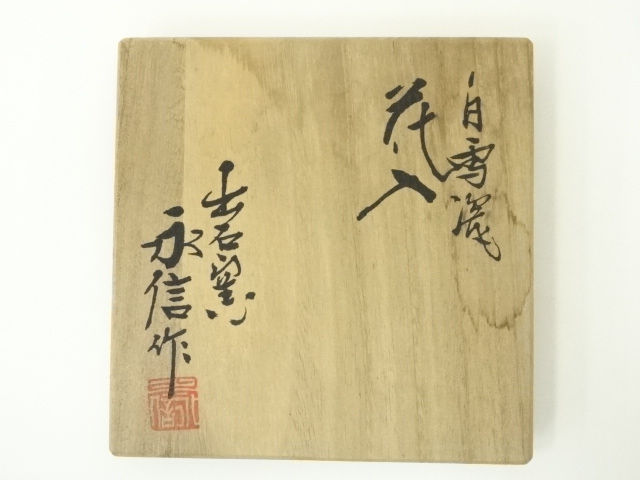 白雪瓷
花入
出石窯
永信作